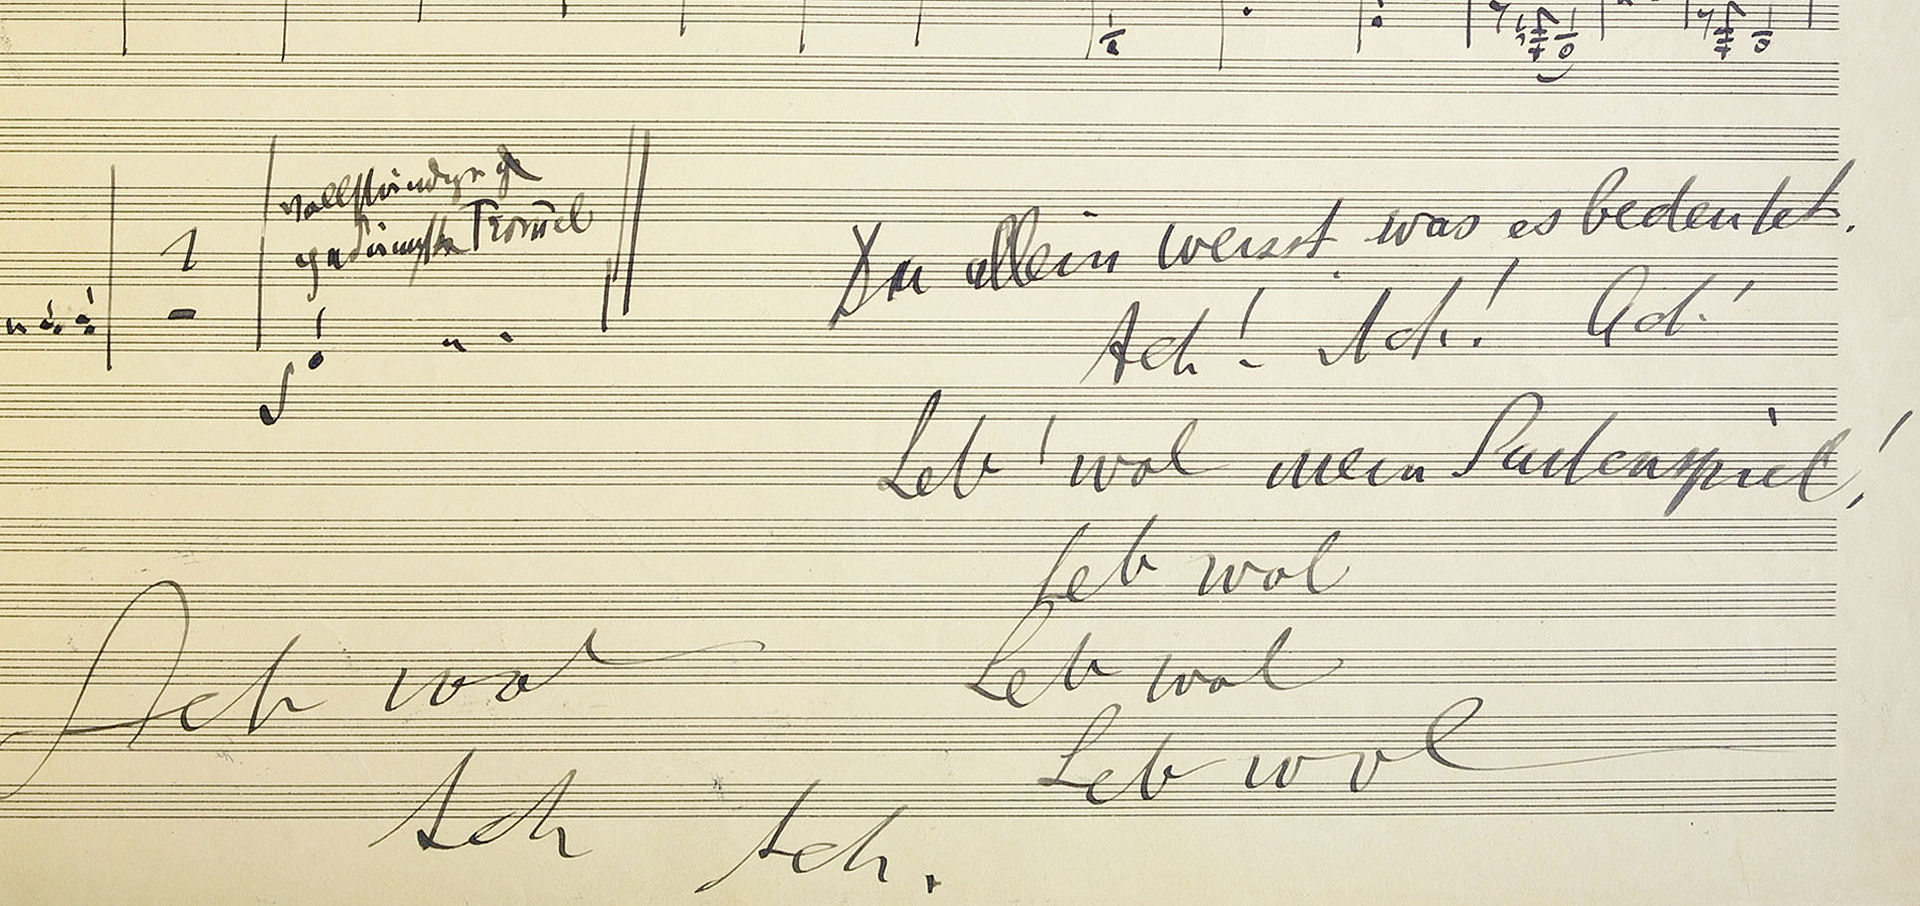 vollständig ge
gedämpfte Trom̄el
Du allein weisst was es bedeutet.
Ach! Ach! Ach!
Leb' wol mein Saitenspiel!
Leb wol
Leb wol
Leb wol
Leb wol
Ach Ach.